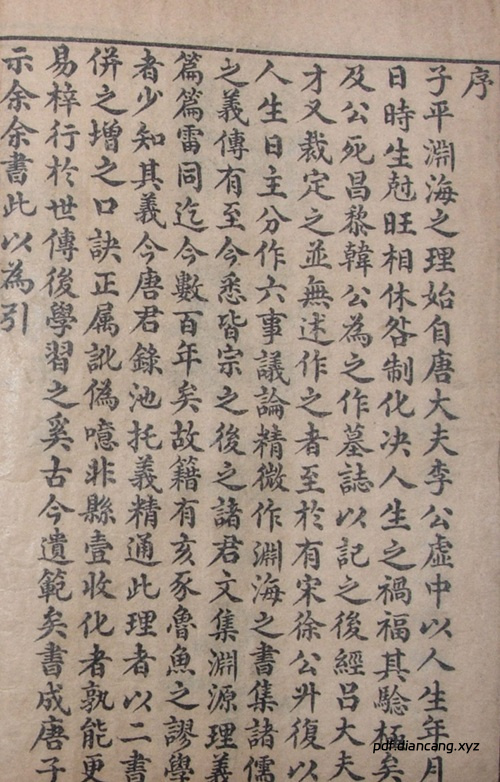 序
子平淵海之理始自唐大夫李公虛中以人生年月
日時生尅旺相休咎制化决人生之禍福其驗極矣
及公死昌黎韓公為之作墓誌以記之後經呂大夫
才又裁定之並無述作之者至於有宋徐公升復以
人生日主分作六事議論精微作淵海之書集諸儒
之義傳有至今悉皆宗之後之諸君文集淵源理義
篇篇雷同迄今數百年矣故籍有亥豕魯魚之謬學
者少知其義今唐君錄池托義精通此理者以二書
併之增之口訣正属訛偽噫非縣壹收化者孰能更
易梓行於世傳後學習之奚古今遺範矣書成唐子
示余余書此以為引
pdf.diancang.xyz